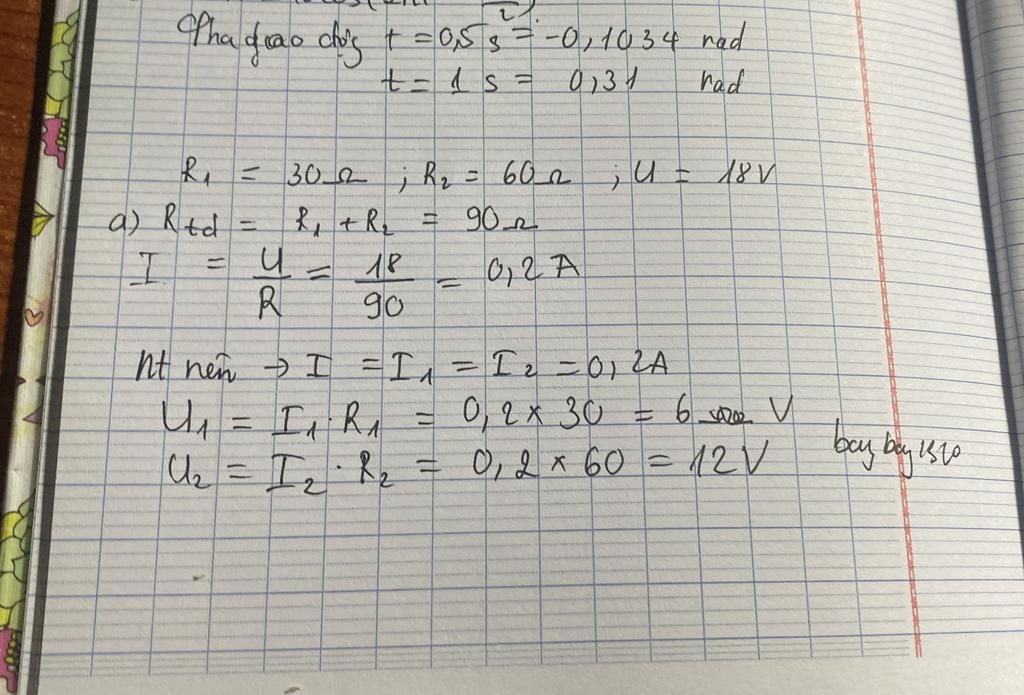 Pha dao động t = 0,5 s = -0,1034 rad
t = 1 s = 0,31 rad
R1 = 30Ω ; R2 = 60Ω ; U = 18V
a) Rtd = R1 + R2 = 90Ω
I = U/R = 18/90 = 0,2 A
nt nên → I = I1 = I2 = 0,2A
U1 = I1 · R1 = 0,2 × 30 = 6 V
U2 = I2 · R2 = 0,2 × 60 = 12V